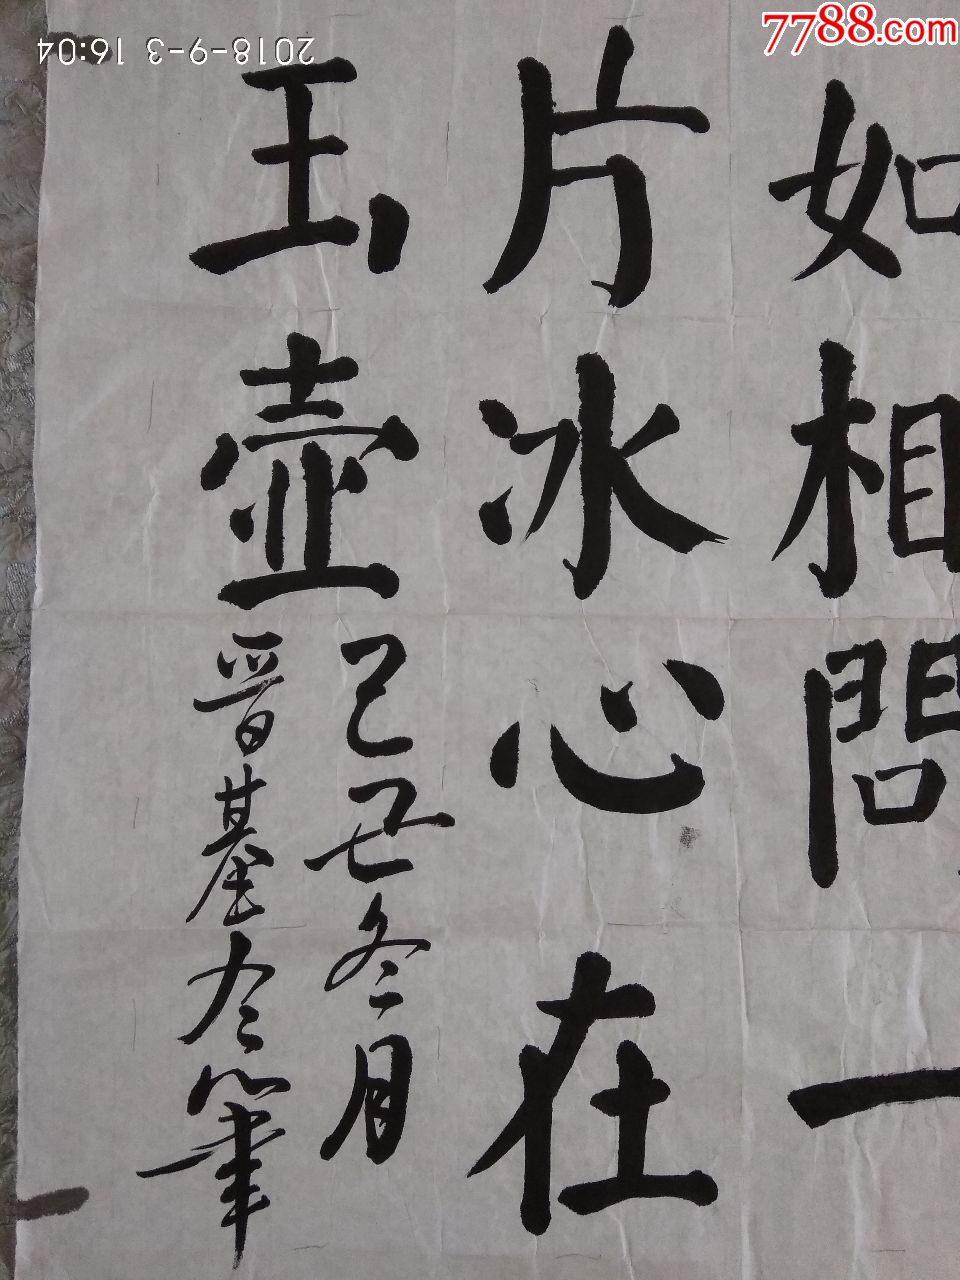 7788.com
2018-9-3 16:04
如相問一
片冰心在
玉壺
己丑冬月
晋基冬筆